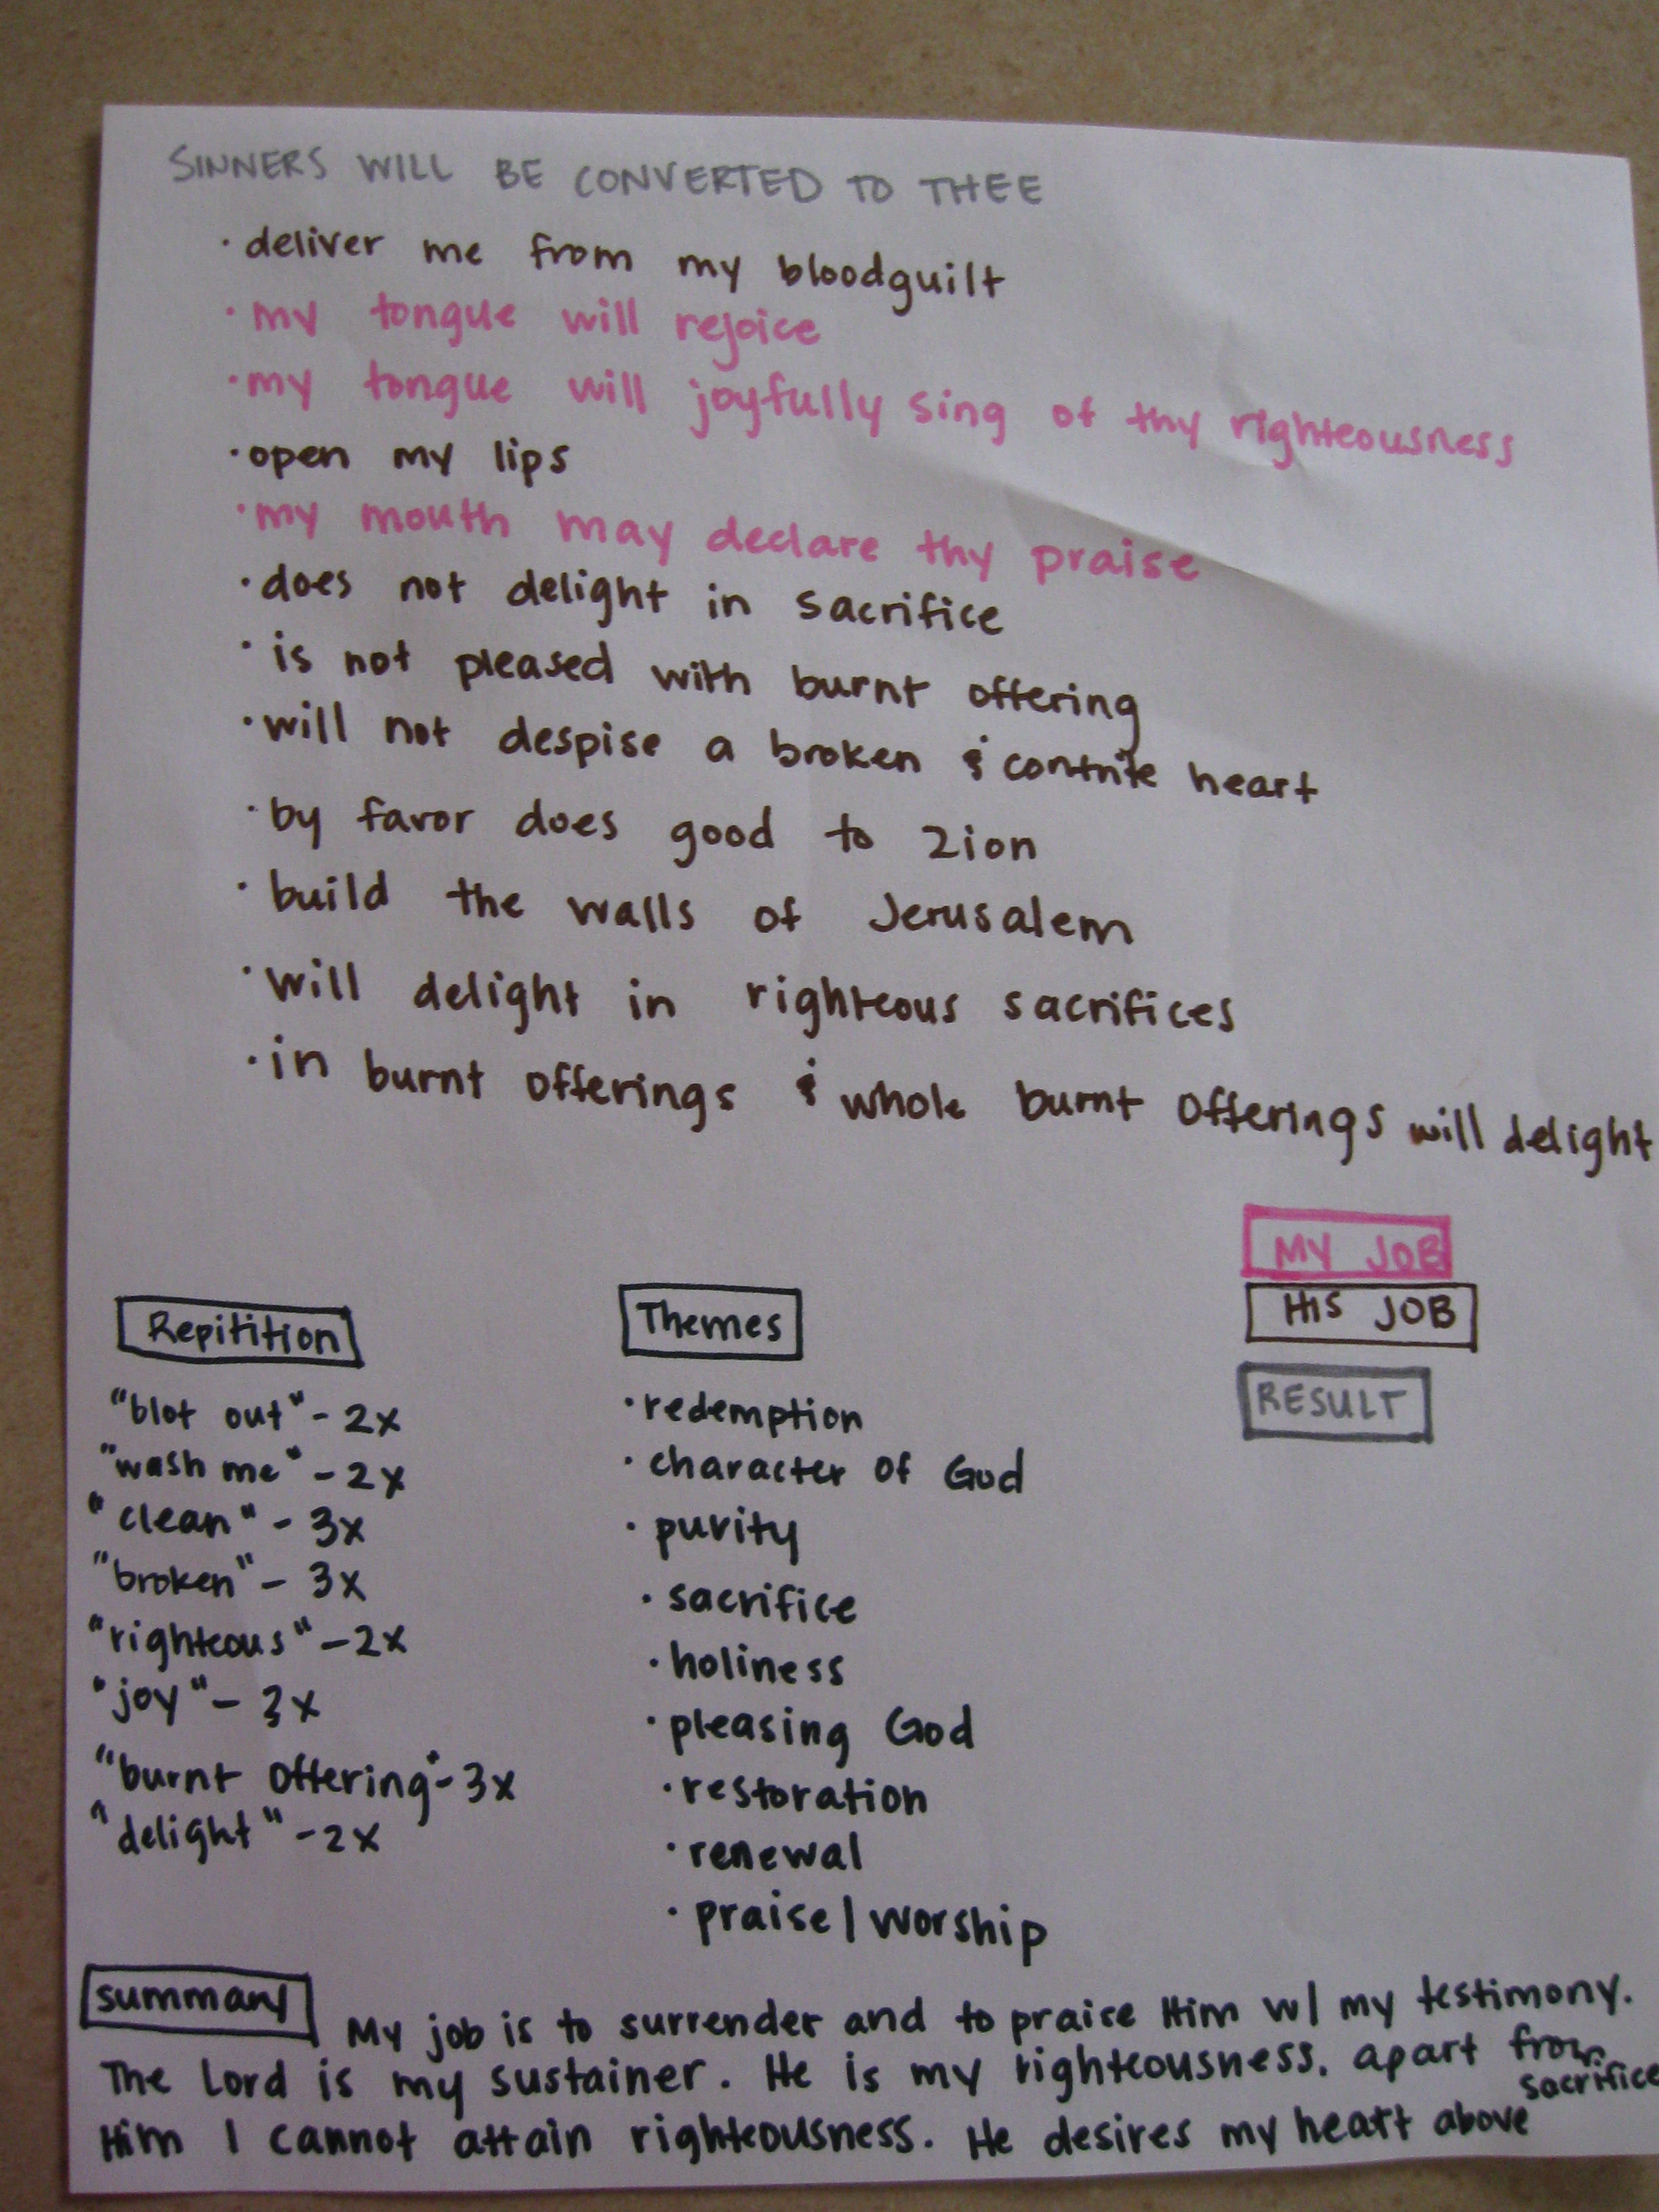 SINNERS WILL BE CONVERTED TO THEE
· deliver me from my bloodguilt
· my tongue will rejoice
· my tongue will joyfully sing of thy righteousness
· open my lips
· my mouth may declare thy praise
· does not delight in sacrifice
· is not pleased with burnt offering
· will not despise a broken & contrite heart
· by favor does good to Zion
· build the walls of Jerusalem
· will delight in righteous sacrifices
· in burnt offerings & whole burnt offerings will delight
MY JOB
HIS JOB
RESULT
Repitition
"blot out" - 2x
"wash me" - 2x
"clean" - 3x
"broken" - 3x
"righteous" - 2x
"joy" - 3x
"burnt offering" - 3x
"delight" - 2x
Themes
· redemption
· character of God
· purity
· sacrifice
· holiness
· pleasing God
· restoration
· renewal
· praise/worship
summary My job is to surrender and to praise Him w/ my testimony.
The Lord is my sustainer. He is my righteousness. apart from
Him I cannot attain righteousness. He desires my heart above sacrifice